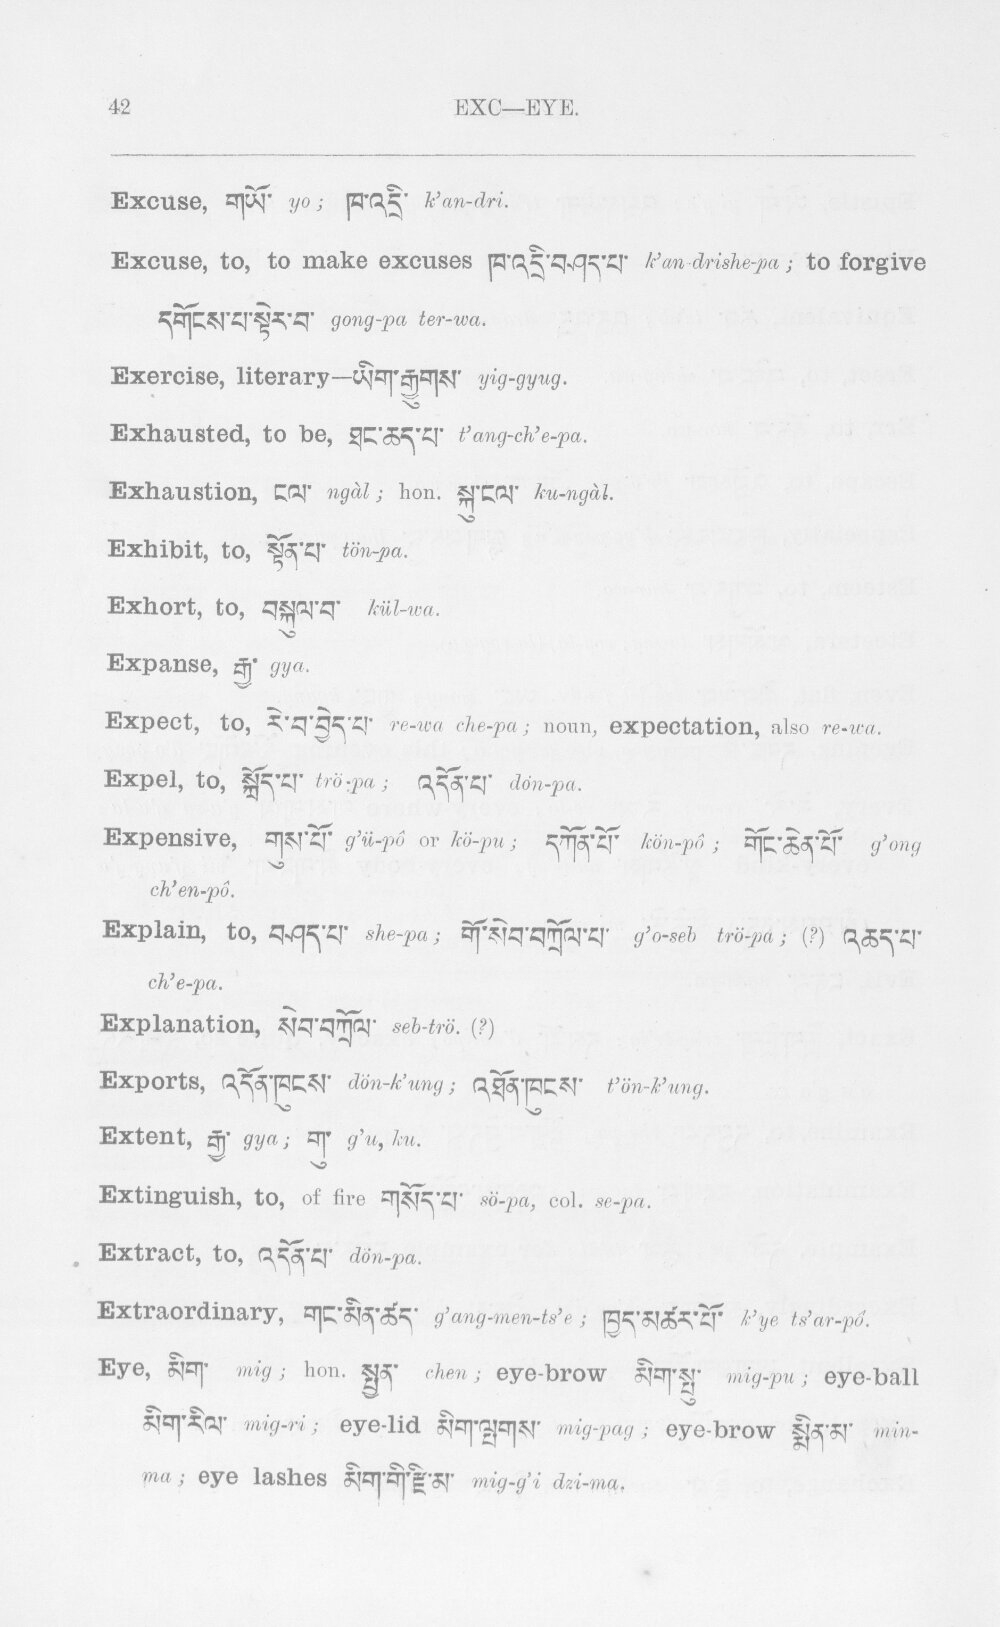 42 EXC—EYE.
Excuse, གཡོ་ yo; ཁ་འདྲི་ k’an-dri.
Excuse, to, to make excuses ཁ་འདྲི་བཤད་པ་ k’an-drishe-pa; to forgive
དགོངས་པ་སྟེར་བ་ gong-pa ter-wa.
Exercise, literary—ཡིག་རྒྱུགས་ yig-gyug.
Exhausted, to be, ཐང་ཆད་པ་ t’ang-ch’e-pa.
Exhaustion, ངལ་ ngàl; hon. སྐུ་ངལ་ ku-ngàl.
Exhibit, to, སྟོན་པ་ tön-pa.
Exhort, to, བསྐུལ་བ་ kül-wa.
Expanse, རྒྱ་ gya.
Expect, to, རེ་བ་བྱེད་པ་ re-wa che-pa; noun, expectation, also re-wa.
Expel, to, སྐྲོད་པ་ trö-pa; འདོན་པ་ dön-pa.
Expensive, གུས་པོ་ g’ü-pô or kö-pu; དཀོན་པོ་ kön-pô; གོང་ཆེན་པོ་ g’ong
ch’en-pô.
Explain, to, བཤད་པ་ she-pa; གོ་སེབ་བཀྲོལ་པ་ g’o-seb trö-pa; (?) འཆད་པ་
ch’e-pa.
Explanation, སེབ་བཀྲོལ་ seb-trö. (?)
Exports, འདོན་ཁུངས་ dön-k’ung; འཐོན་ཁུངས་ t’ön-k’ung.
Extent, རྒྱ་ gya; གུ་ g’u, ku.
Extinguish, to, of fire གསོད་པ་ sö-pa, col. se-pa.
Extract, to, འདོན་པ་ dön-pa.
Extraordinary, གང་མིན་ཚད་ g’ang-men-ts’e; ཁྱད་མཚར་པོ་ k’ye ts’ar-pô.
Eye, མིག་ mig; hon. སྤྱན་ chen; eye-brow མིག་སྤུ་ mig-pu; eye-ball
མིག་རིལ་ mig-ri; eye-lid མིག་ལྤགས་ mig-pag; eye-brow སྨིན་མ་ min-
ma; eye lashes མིག་གི་རྫི་མ་ mig-g’i dzi-ma.